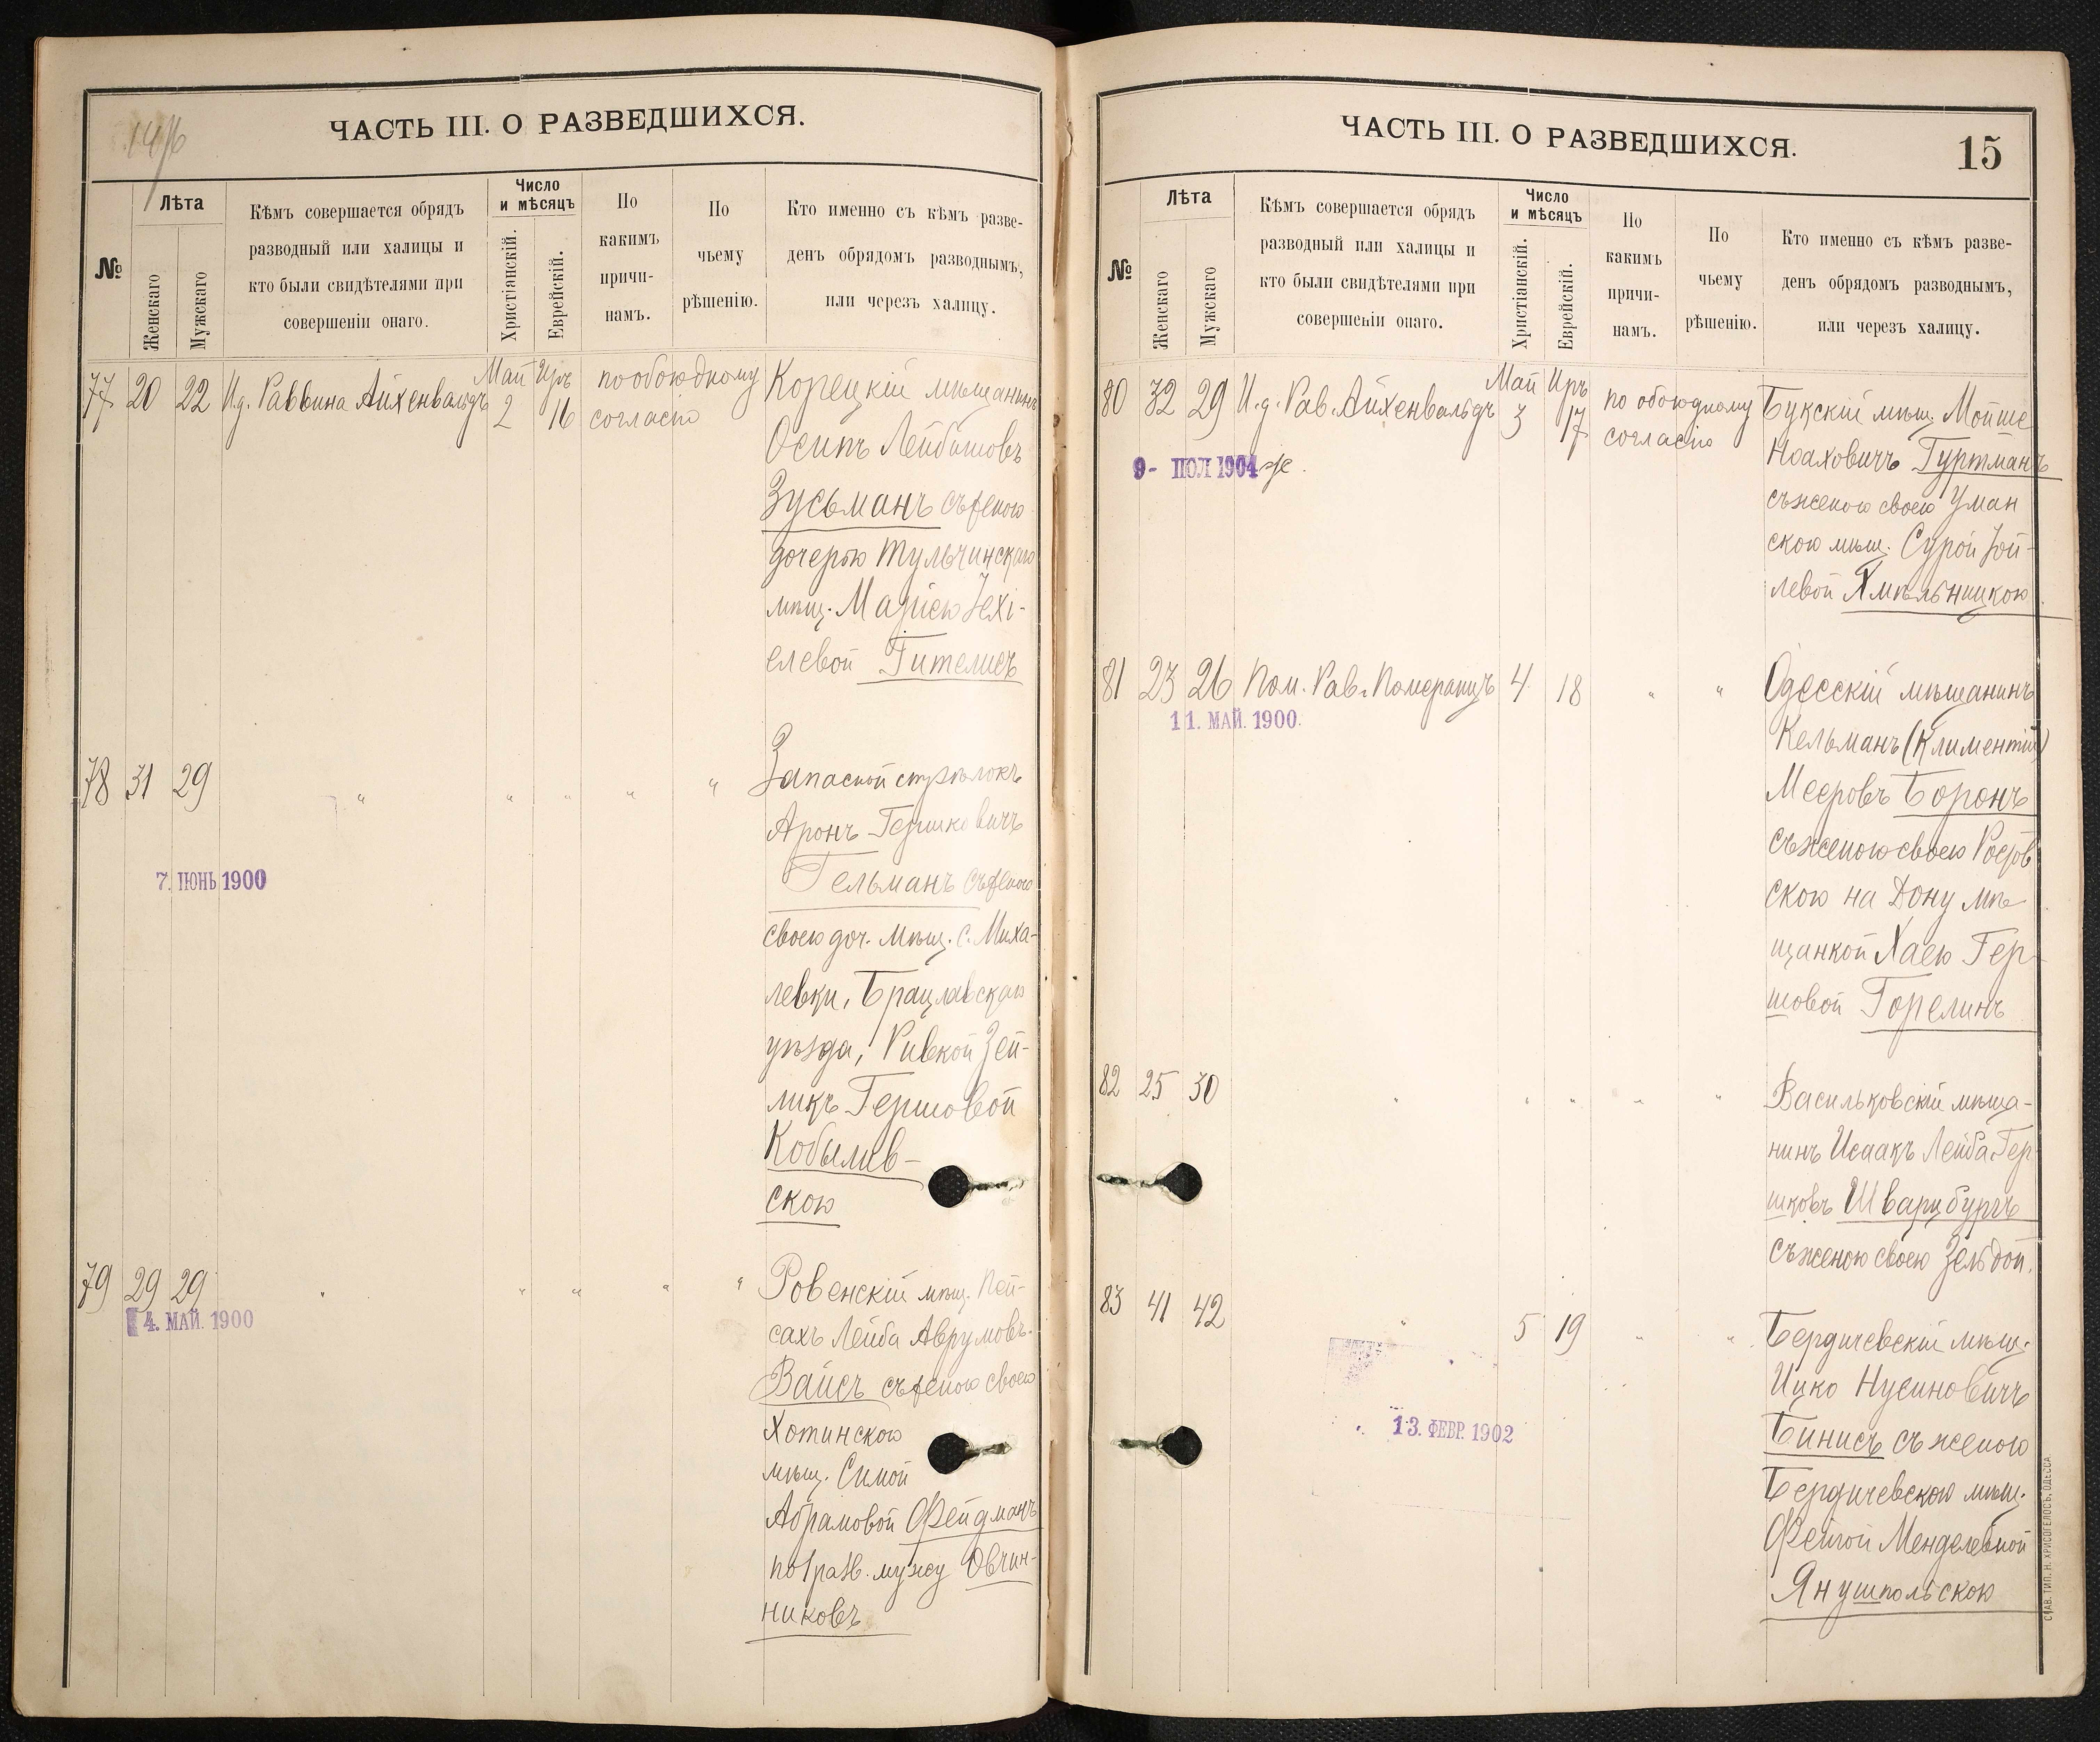 14/16
ЧАСТЬ III. О РАЗВЕДШИХСЯ.
№
Лѣта
Женскаго
Мужскаго
Кѣмъ совершается обрядъ
разводный или халицы и
кто были свидѣтелями при
совершеніи онаго.
Число
и мѣсяцъ
Христіанскій.
Еврейскій.
По
какимъ
причи-
намъ.
По
чьему
рѣшенію.
Кто именно съ кѣмъ разве-
денъ обрядомъ разводнымъ,
или черезъ халицу.
77 20 22 И.д. Раввина Айхенвальдъ Май 2 Иръ 16 по обоюдному
согласію
Корецкій мѣщанинъ
Осипъ Лейбишовъ
Зусьманъ съ женою
дочерью Тульчинскаго
мѣщ. Маріею Іехі-
елевой Гителисъ
78 31 29 " " " " "
7. ІЮНЬ 1900
Запасной стрѣлокъ
Аронъ Гершковичъ
Гельманъ съ женою
своею доч. мѣщ. с. Миха-
левки, Брацлавскаго
уѣзда, Ривкой Зей-
ликъ Гершовой
Кобылив-
скою
79 29 29 " " " " "
4. МАЙ. 1900
Ровенскій мѣщ. Пей-
сахъ Лейба Аврумовъ
Вайсъ съ женою своею
Хотинскою
мѣщ. Симой
Абрамовой Фейдманъ
по 1 разв. мужу Овчин-
никовъ
ЧАСТЬ III. О РАЗВЕДШИХСЯ.
15
№
Лѣта
Женскаго
Мужскаго
Кѣмъ совершается обрядъ
разводный или халицы и
кто были свидѣтелями при
совершеніи онаго.
Число
и мѣсяцъ
Христіанскій.
Еврейскій.
По
какимъ
причи-
намъ.
По
чьему
рѣшенію.
Кто именно съ кѣмъ разве-
денъ обрядомъ разводнымъ,
или черезъ халицу.
80 32 29 И.д. Рав. Айхенвальдъ Май 3 Иръ 17 по обоюдному
согласію
9- ІЮЛ 1904
Букскій мѣщ. Мойше
Ноаховичъ Гуртманъ
съ женою своею Уман
скою мѣщ. Сурой Іой-
левой Хмѣльницкою
81 23 26 Пом. Рав. Померанцъ 4 18 " "
11. МАЙ. 1900.
Одесскій мѣщанинъ
Кельманъ (Климентій)
Мееровъ Боронъ
съ женою своею Ростов
скою на Дону мѣ
щанкой Хаею Гер-
шовой Горелинъ
82 25 30 " " " " "
Васильковскій мѣща-
нинъ Исаакъ Лейба Гер
шковъ Шварцбургъ
съ женою своею Зельдой.
83 41 42 " 5 19 " "
13. ФЕВР. 1902
Бердичевскій мѣщ.
Ицко Нусиновичъ
Бинисъ съ женою
Бердичевскою мѣщ.
Фейгой Менделевной
Янушпольскою
СЛАВ. ТИП. Н. ХРИСОГЕЛОСЪ, ОДЕССА